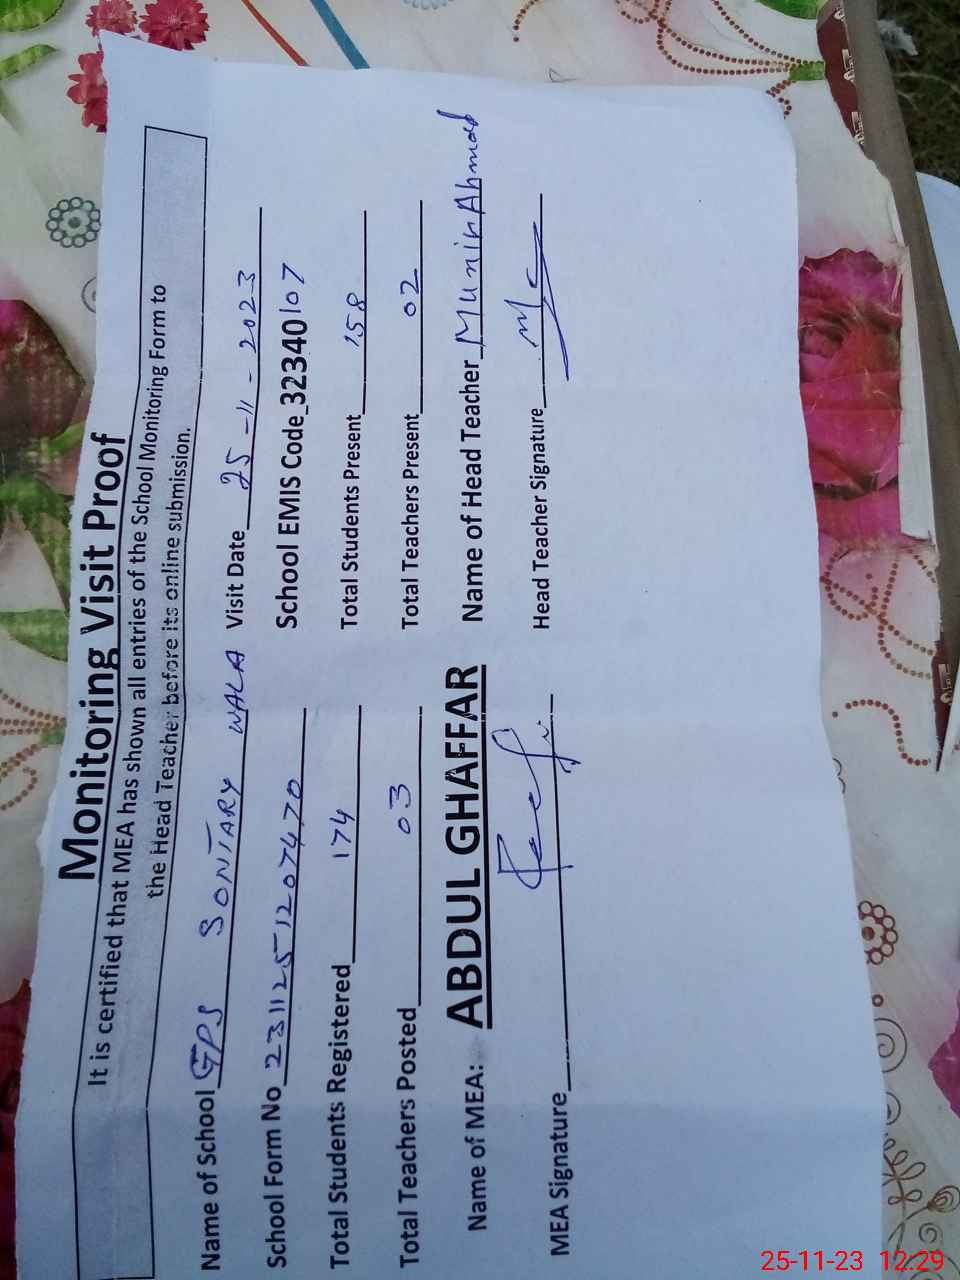 Monitoring Visit Proof
It is certified that MEA has shown all entries of the School Monitoring Form to
the Head Teacher before its online submission.
Name of School GPS SONTARY WALA Visit Date 25-11-2023
School Form No 2311251207470 School EMIS Code_32340107
Total Students Registered 174 Total Students Present 158
Total Teachers Posted 03 Total Teachers Present 02
Name of MEA: ABDUL GHAFFAR Name of Head Teacher Ahmad
MEA Signature Head Teacher Signature
25-11-23 12:29